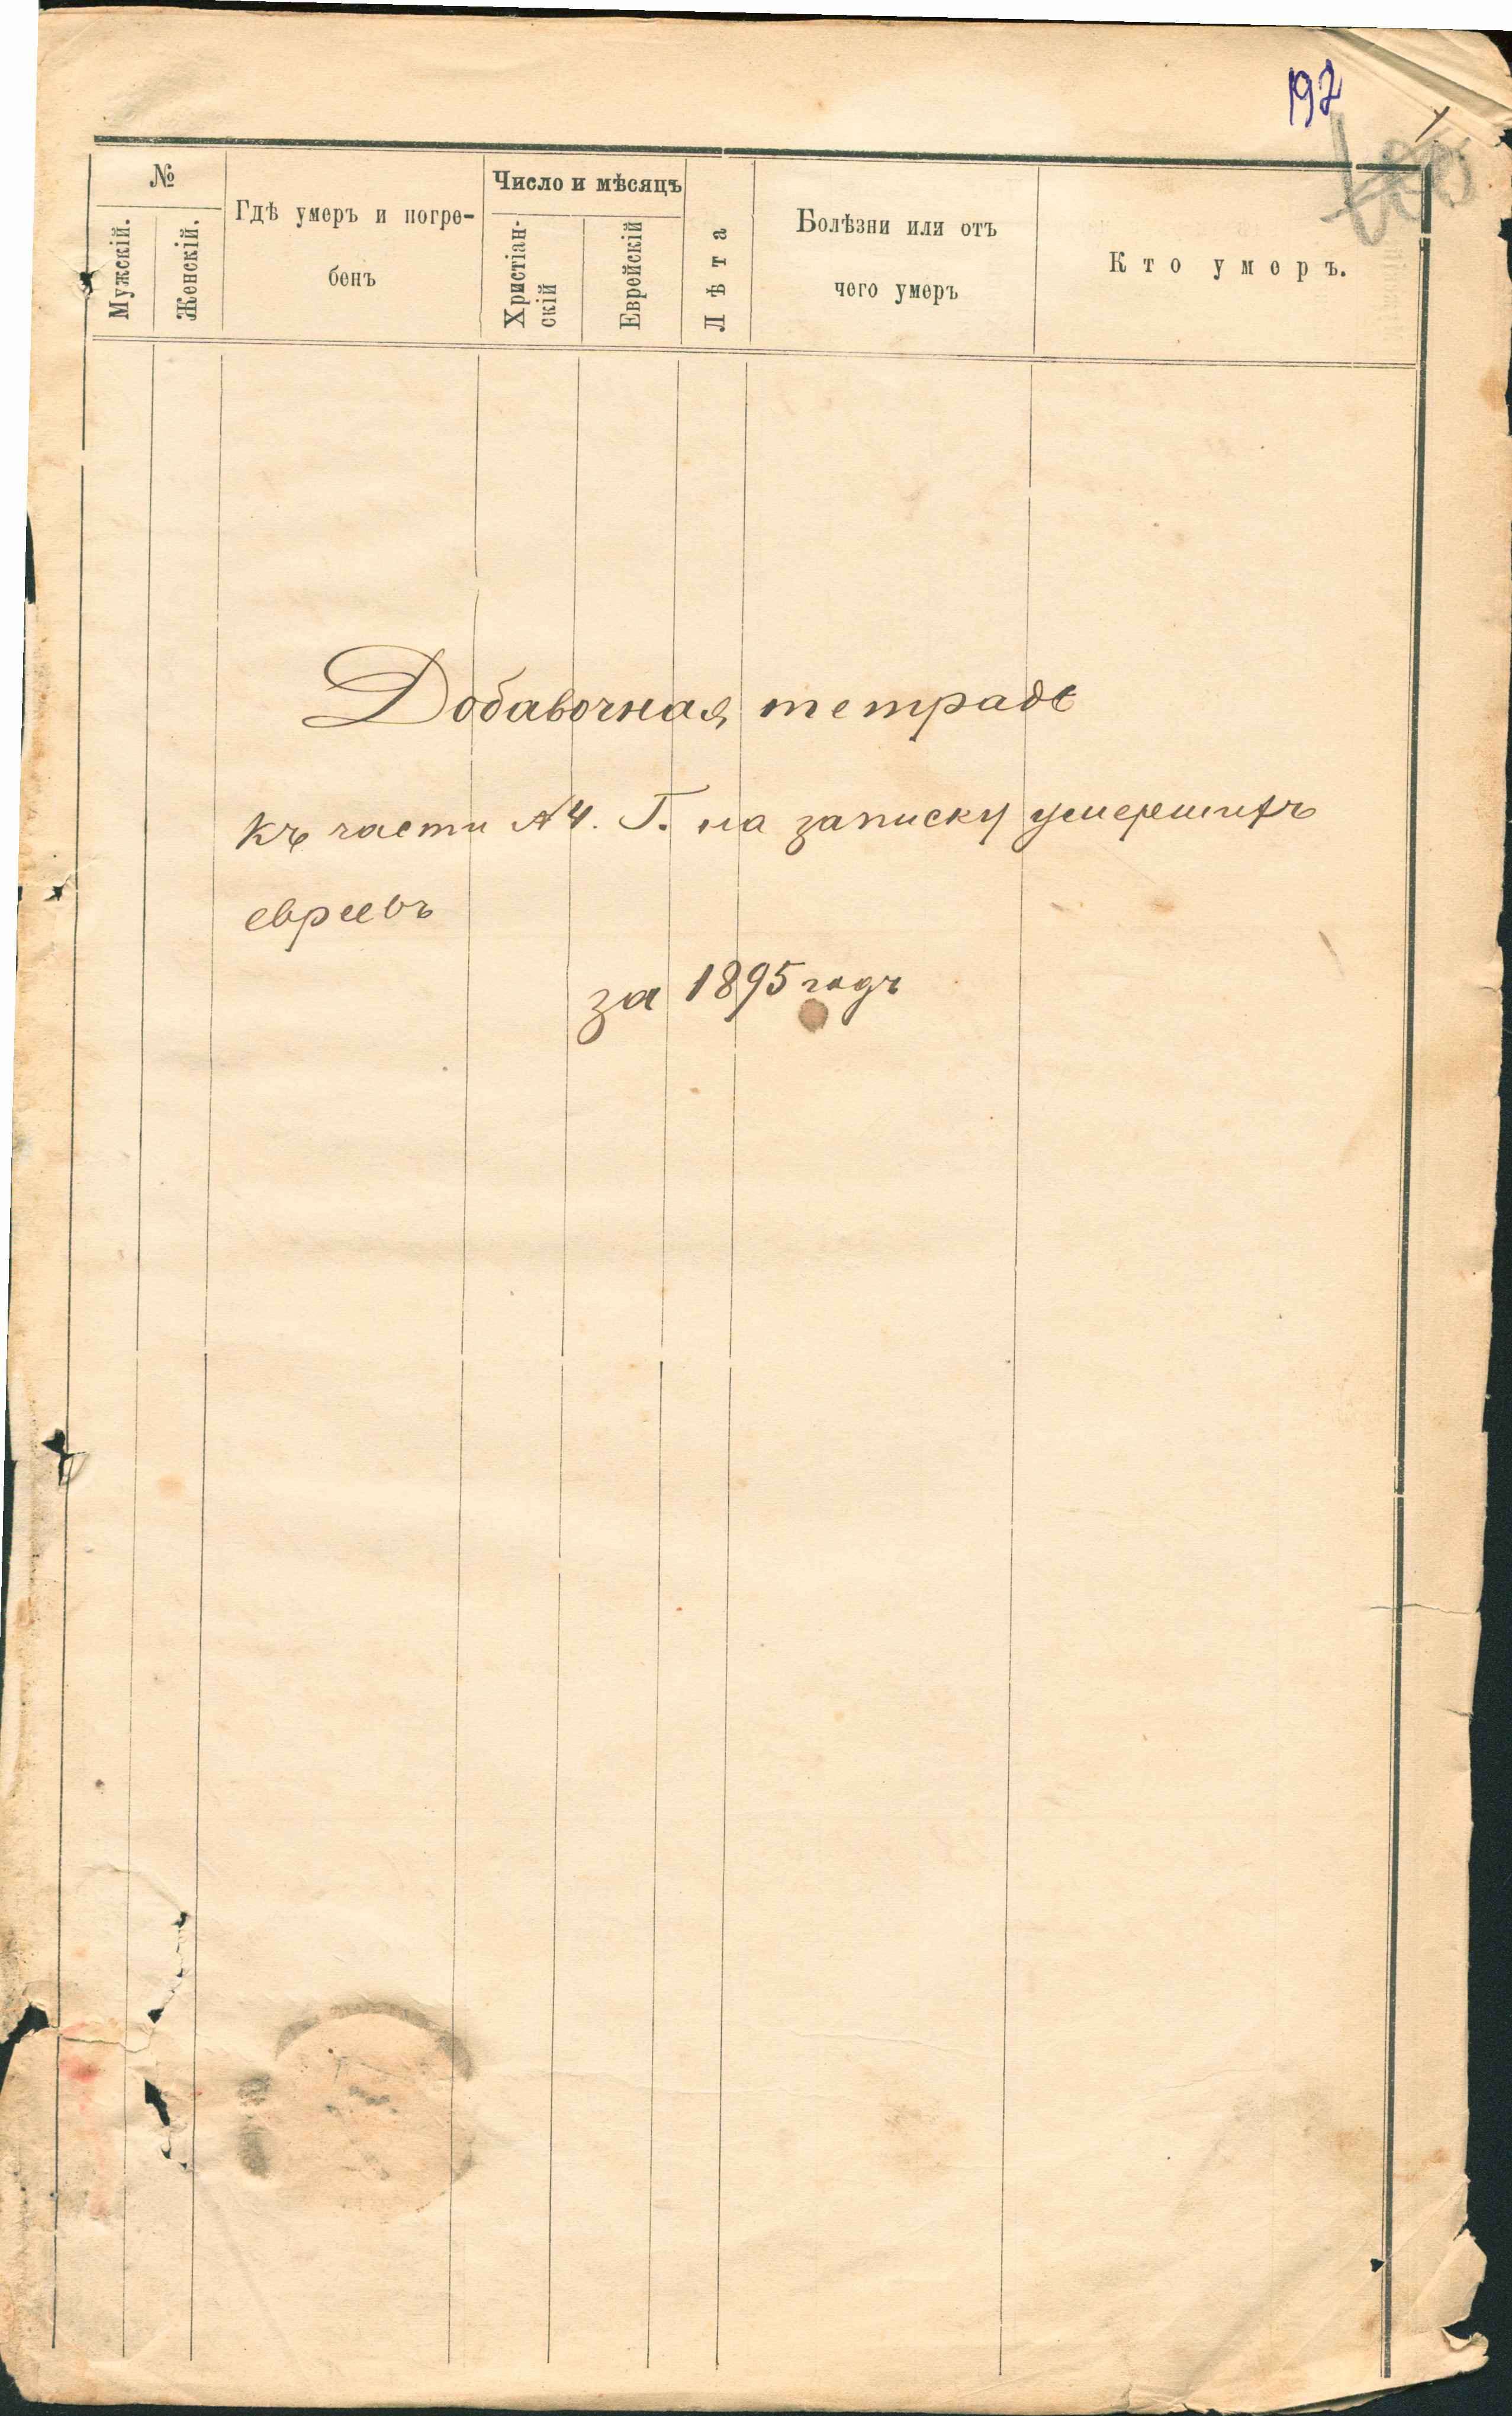 192
№
Мужскій.
Женскій.
Гдѣ умеръ и погре-
бенъ
Число и мѣсяцъ
Христіан-
скій
Еврейскій
Лѣта
Болѣзни или отъ
чего умеръ
Кто умеръ.
Добавочная тетрадь
къ части №4. Г. на записку умершихъ
евреевъ
за 1895 годъ